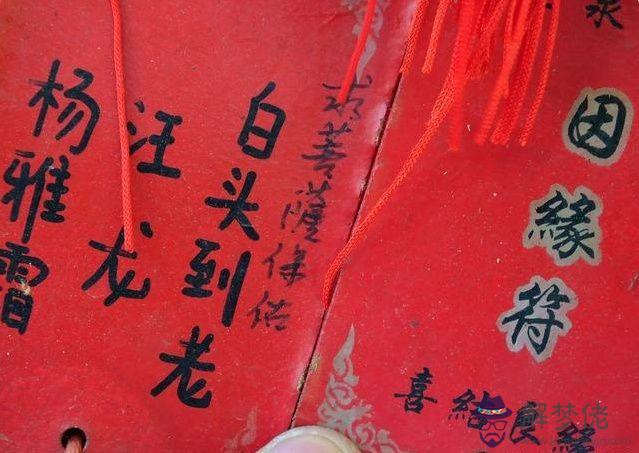 因緣符
喜結良緣
求菩薩保佑
白头到老
汪龙
杨雅雪
解梦佬